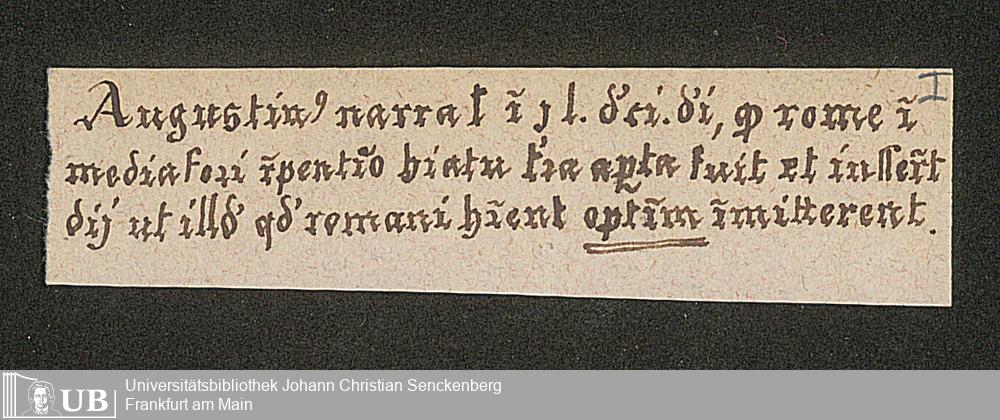 I
Augustinꝰ narrat ī jl. d'ci. d'i, ꝙ rome ī
media fori r̄pentīo hiatu t'ra apta fuit et iusser̄t
dij ut illd' qd' romani hr̄ent optīm īmitterent.
UB
Universitätsbibliothek Johann Christian Senckenberg
Frankfurt am Main